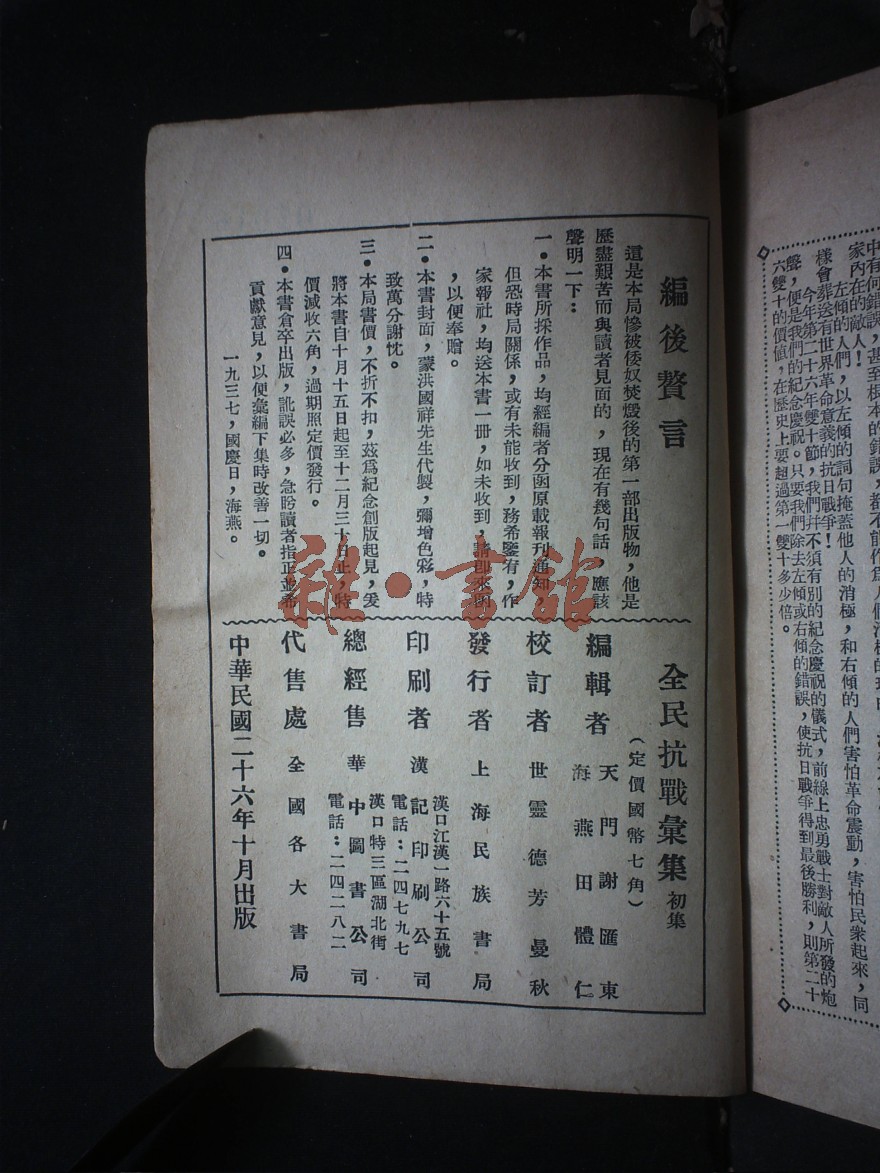 中有何錯誤，甚至根本的錯誤，都不能作爲人們消極的
家內在的敵人！
左傾的人們，以左傾的詞句掩蓋他人的消極，和右傾的人們害怕革命震動，害怕民衆起來，同
樣會葬送有世界革命意義的抗日戰爭！
今年第二十六年雙十節，我們幷不須有別的紀念慶祝的儀式，前線上忠勇戰士對敵人所發的炮
聲，便是我們的紀念慶祝。只要我們除去左傾或右傾的錯誤，使抗日戰爭得到最後勝利，則第二十
六雙十的價値，在歷史上要超過第一雙十多少倍。
編後贅言
這是本局慘被倭奴焚燬後的第一部出版物，他是
歷盡艱苦而與讀者見面的，現在有幾句話，應該
聲明一下：
一•本書所採作品，均經編者分函原載報刊通知
但恐時局關係，或有未能收到，務希鑒宥，作
家報社，均送本書一冊，如未收到，請卽來函
，以便奉贈。
二•本書封面，蒙洪國祥先生代製，彌增色彩，特
致萬分謝忱。
三•本局書價，不折不扣，茲爲紀念創版起見，爰
將本書自十月十五日起至十二月三十日止，特
價減收六角，過期照定價發行。
四•本書倉卒出版，訛誤必多，急盼讀者指正並希
貢獻意見，以便彙編下集時改善一切。
一九三七，國慶日，海燕。
全民抗戰彙集 初集
（定價國幣七角）
編輯者 天門謝匯東
海燕田體仁
校訂者 世靈德芳曼秋
發行者 上海民族書局
漢口江漢一路六十五號
印刷者 漢記印刷公司
電話：二四七九七
漢口特三區湖北街
總經售 華中圖書公司
電話：二四二八二
代售處 全國各大書局
中華民國二十六年十月出版
雜•書館